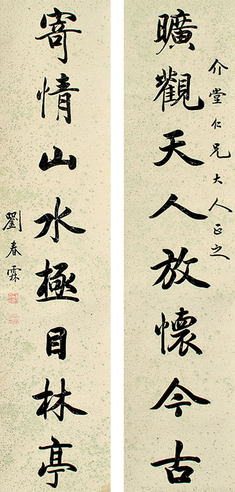 曠觀天人放懷今古
介堂仁兄大人正之
寄情山水極目林亭
劉春霖